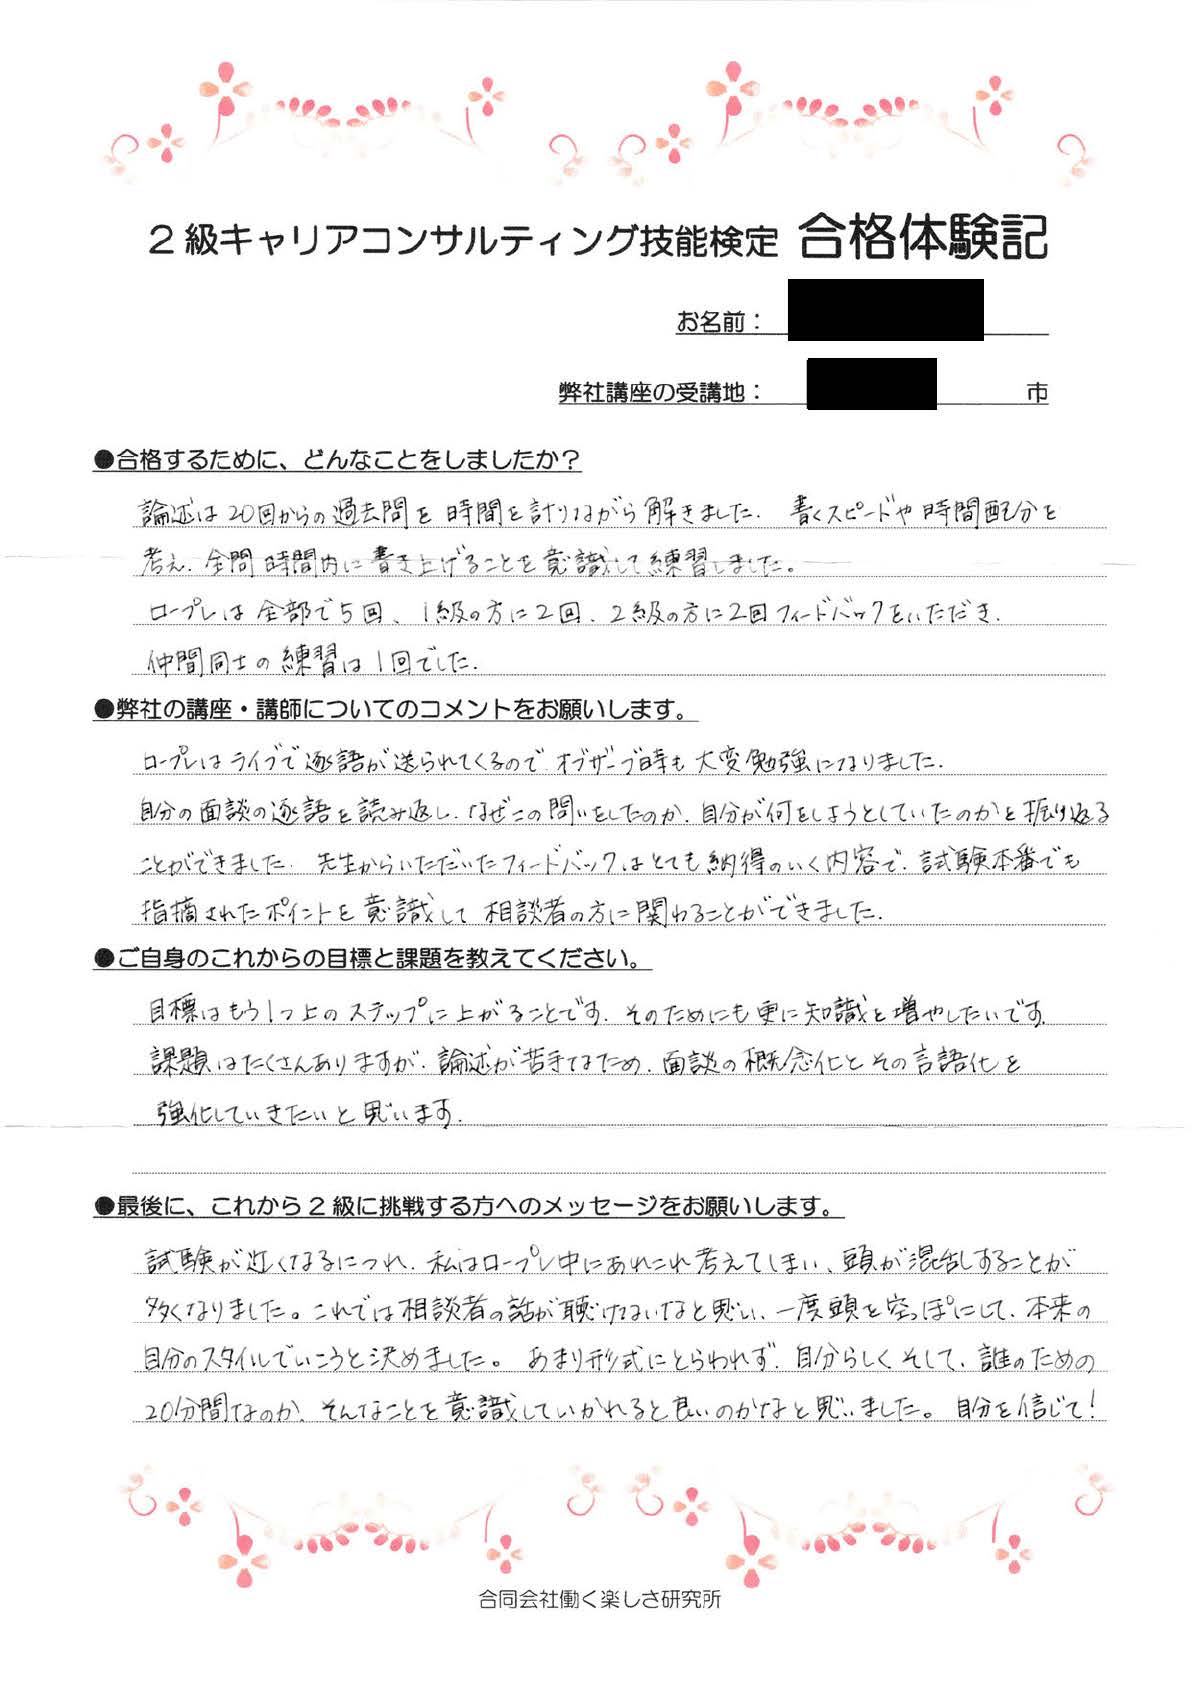 2級キャリアコンサルティング技能検定 合格体験記
お名前：
弊社講座の受講地： 市
●合格するために、どんなことをしましたか？
論述は20回からの過去問を時間を計りながら解きました. 書くスピードや時間配分を
考え、全問時間内に書き上げることを意識して練習しました。
ロープレは全部で5回、1級の方に2回、2級の方に2回フィードバックをいただき、
仲間同士の練習は1回でした.
●弊社の講座・講師についてのコメントをお願いします。
ロープレはライブで逐語が送られてくるので オブザーブ時も大変勉強になりました.
自分の面談の逐語を読み返し、なぜこの問いをしたのか、自分が何をしようとしていたのかを振り返る
ことができました. 先生からいただいたフィードバックはとても納得のいく内容で、試験本番でも
指摘されたポイントを意識して相談者の方に関わることができました.
●ご自身のこれからの目標と課題を教えてください。
目標はもう1つ上のステップに上がることです. そのためにも更に知識を増やしたいです.
課題はたくさんありますが、論述が苦手なため、面談の概念化とその言語化を
強化していきたいと思います.
●最後に、これから2級に挑戦する方へのメッセージをお願いします。
試験が近くなるにつれ、私はロープレ中にあれこれ考えてしまい、頭が混乱することが
多くなりました。これでは相談者の話が聴けないなと思い、一度頭を空っぽにして、本来の
自分のスタイルでいこうと決めました。 あまり形式にとらわれず、自分らしく そして、誰のための
20分間なのか、そんなことを意識していかれると良いのかなと思いました。 自分を信じて！
合同会社働く楽しさ研究所